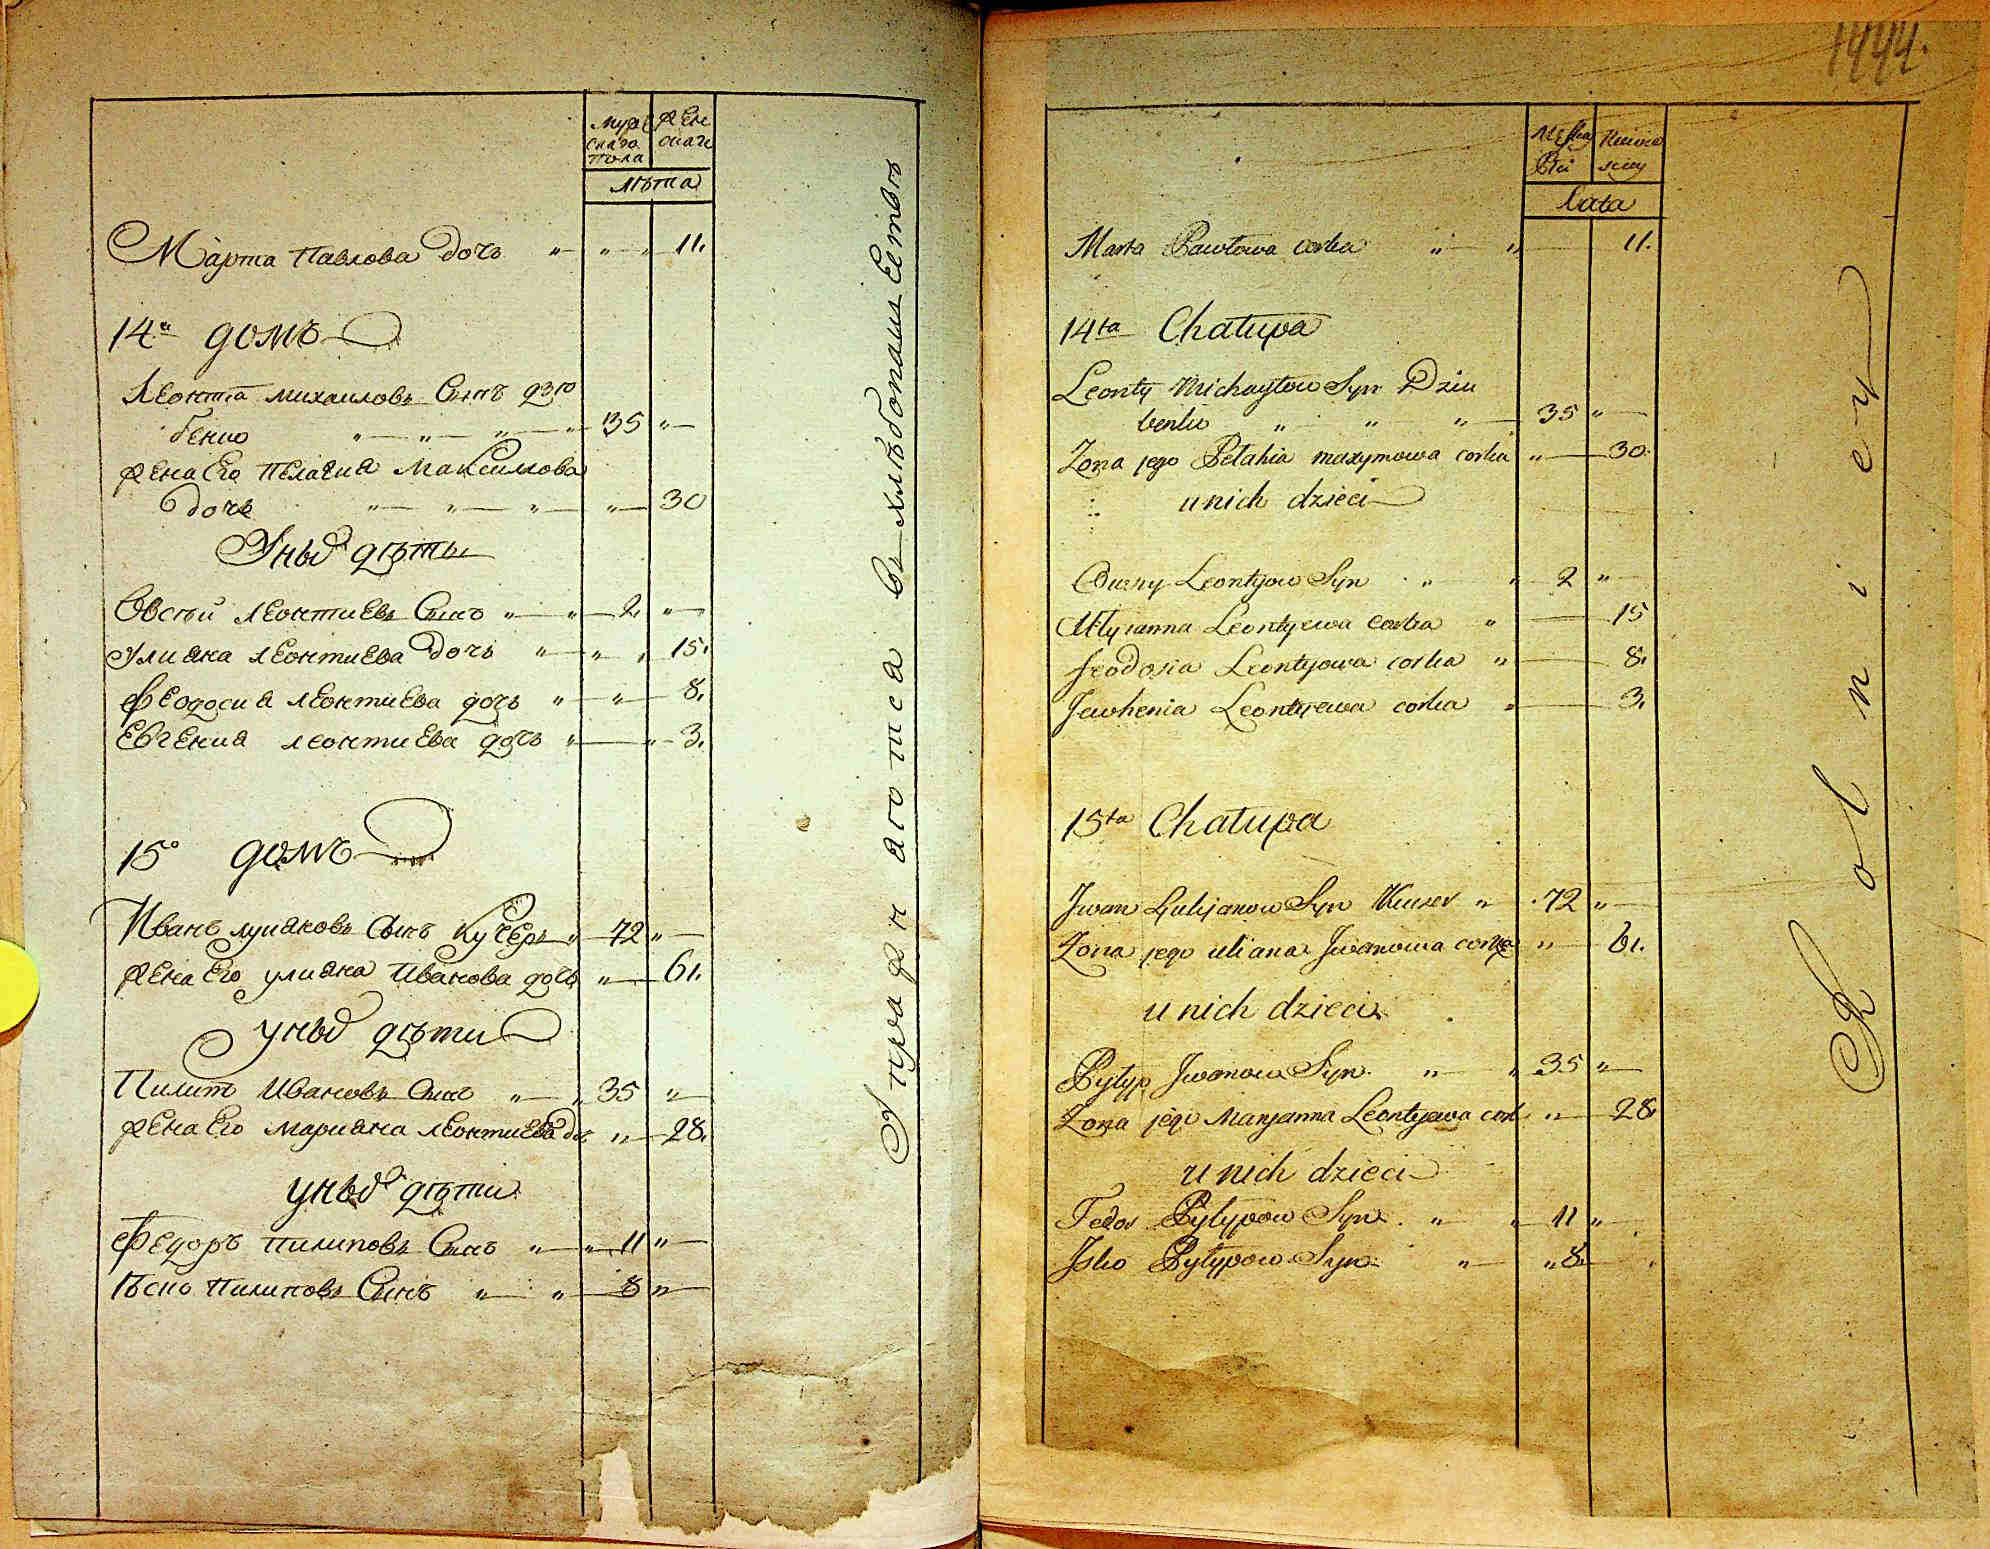 мужскаго пола
женскаго
лѣта
Марта Павлова дочь " " " 11.
14й домъ
Леонтiй Михаиловъ Сынъ Дзю
бенко " " " " 35 "
жена Его Пелагия Максимова
дочь " " " " 30
У ныхъ дѣты
Овсѣй Леонтиевъ Сынъ " " 2. "
Улияна Леонтиева дочь " " " 15.
Феодосия Леонтиева дочь " " 8.
Евгения Леонтиева дочь " " 3.
15й домъ
Иванъ Лукяновъ Сынъ Кучеръ " 72 "
жена Его Улияна Иванова дочь " 61.
У ныхъ дѣти
Пилипъ Ивановъ Сынъ " " 35 "
жена Его Марияна Леонтиева до: " 28.
У ныхъ дѣти
Федоръ Пилиповъ Сынъ " " 11 "
Ѣсko Пилиповъ Сынъ " " 8 "
Упражняются въ хлѣбопашествѣ
1444.
Lata
Marta Pawłowa corka " " 11.
14ta Chałupa
Leonty Michayłow Syn Dziu
benko " " " 35 "
Żona jego Pelahia maxymowa corka " 30.
u nich dzieci
Owsiy Leontyow Syn " " 2 "
Ulyianna Leontyewa corka " 15
Feodosia Leontyowa corka " 8.
Jewhenia Leontyewa corka " 3.
15ta Chałupa
Jwan Łukjanow Syn Kuczer " 72 "
Żona jego uliana Jwanowa corka " 61.
u nich dzieci
Pyłyp Jwanow Syn " " 35 "
Żona jego Maryanna Leontyewa cork " 28.
u nich dzieci
Fedor Pyłypow Syn " " 11 "
Jsko Pyłypow Syn " " 8.
Rolniey